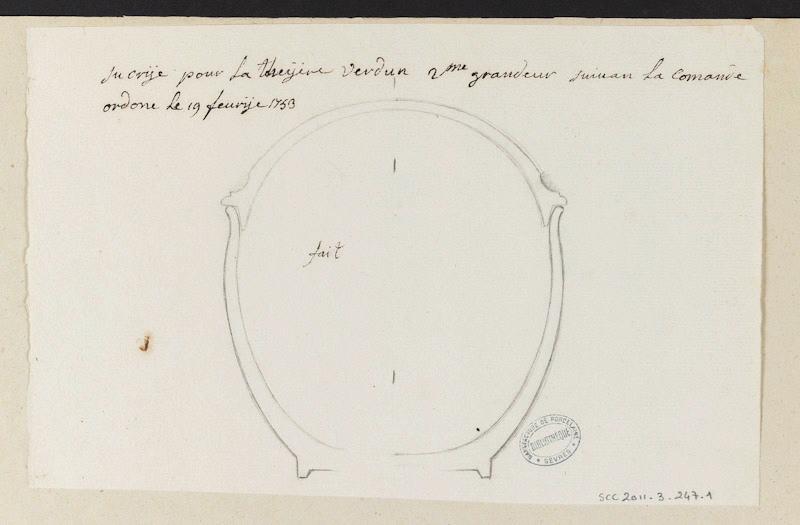 sucrije pour La theijere Verdun 2me grandeur suivan La Comande
ordone Le 19 feurije 1753
fait
MANUFACTURE DE PORCELAINE
BIBLIOTHEQUE
SEVRES
SCC 2011-3-247-1